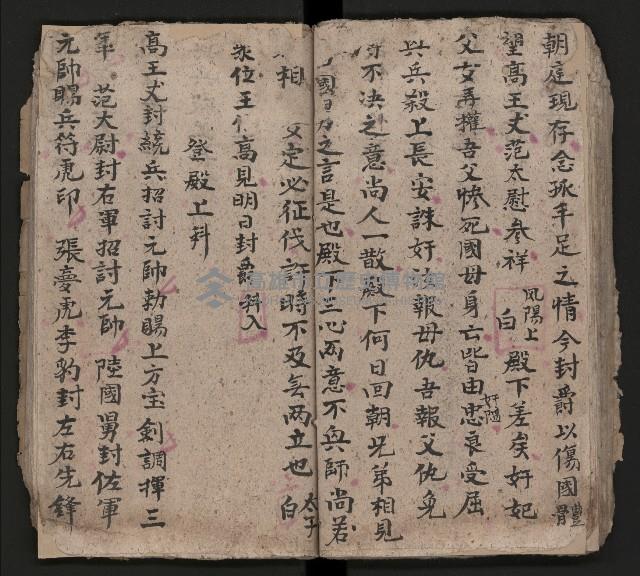 朝庭現存念孫手足之情今封爵以傷國體
望高王丈范太慰參祥 鳳陽上白 殿下差矣奸妃
父女弄權吾父慘死國母身亡皆由奸隨忠良受屈
兵殺上長安誅奸 報母仇吾報父仇免
不决之意尚人一散殿下何日回朝兄弟相見
國 之言是也殿 三心兩意不興師尚若
相 父定必征伐 時不及矣兩立也 太子白
衆位王 高見明日封爵 斜入
登殿上斜
高王丈封統兵招討元帥勅賜上方宝劍調揮三
軍 范大尉封右軍招討元帥 陸國舅封佐軍
元帥賜兵符虎印 張夢虎李豹封左右先鋒
高雄市立歷史博物館